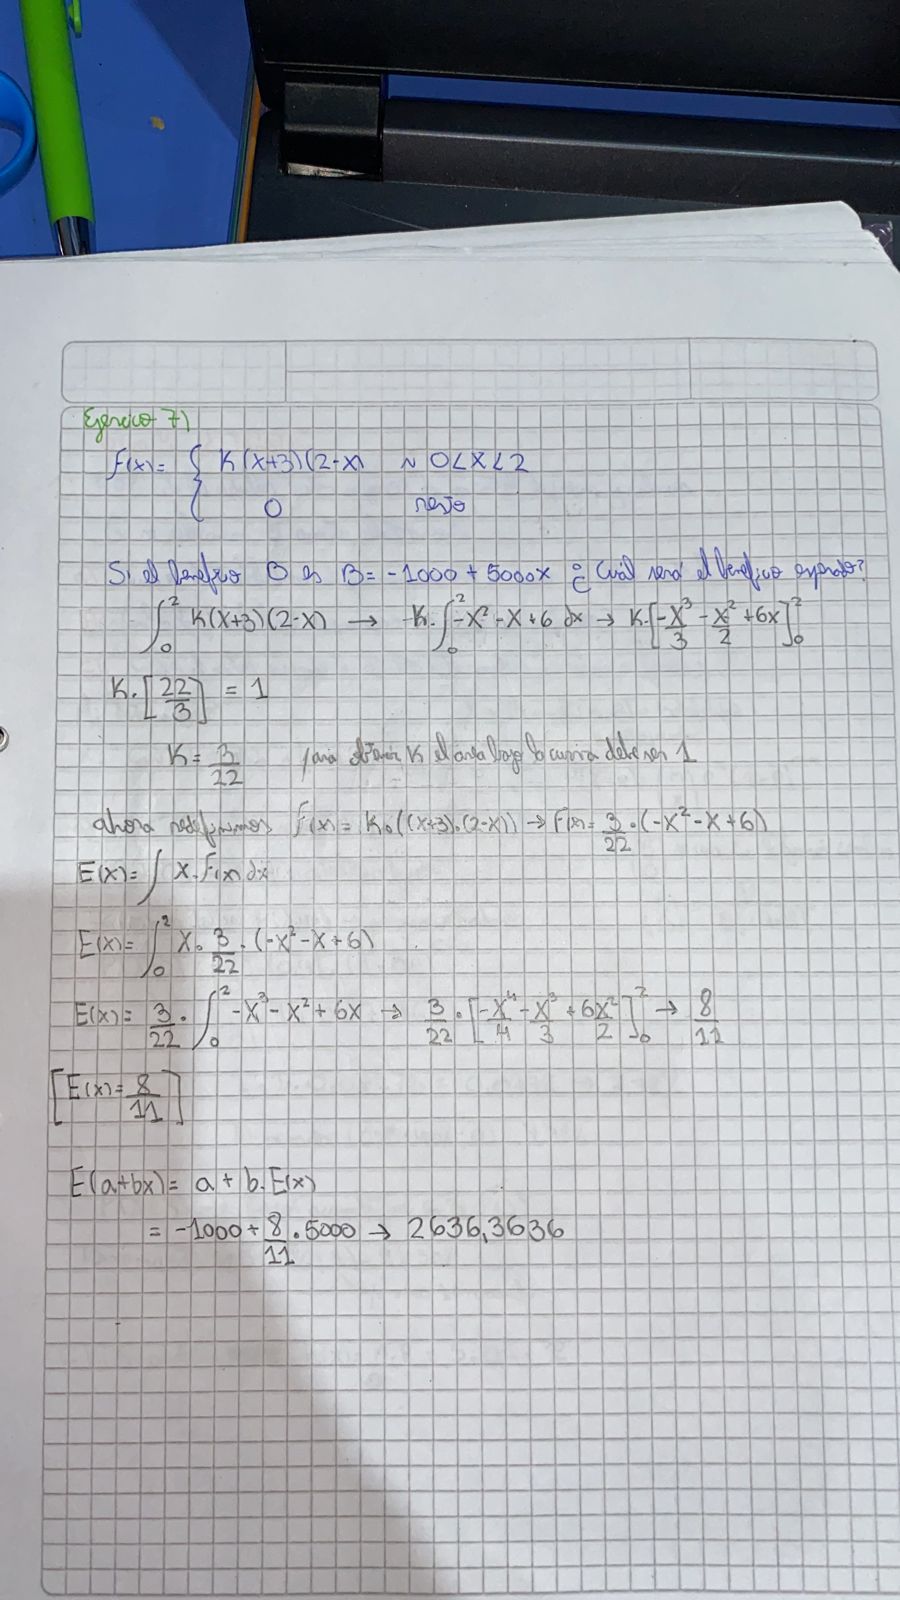 Ejercicio 7)
f(x)= { K(x+3)(2-x) ~ 0<x<2
0 resto
Si el beneficio B es B= -1000 + 5000x ¿Cuál será el beneficio esperado?
∫₀² K(x+3)(2-x) → K.∫₀² -x²-x+6 dx → K.[-x³/3 - x²/2 +6x]₀²
K.[22/3] = 1
K= 3/22 para obtener K el area bajo la curva debe ser 1
ahora redefinimos f(x) = K.((x+3).(2-x)) → F(x)= 3/22 .(-x²-x+6)
E(x)= ∫ x.f(x) dx
E(x)= ∫₀² x. 3/22 .(-x²-x+6)
E(x)= 3/22 . ∫₀² -x³-x²+6x → 3/22 . [-x⁴/4 - x³/3 + 6x²/2]₀² → 8/11
[E(x)= 8/11]
E(a+bx)= a + b.E(x)
= -1000 + 8/11 .5000 → 2636,3636